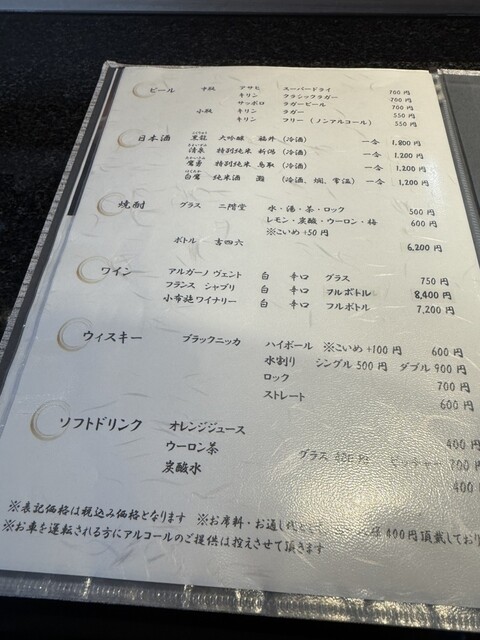 ビール 中瓶 アサヒ スーパードライ 700円
キリン クラシックラガー 700円
サッポロ ラガービール 700円
小瓶 キリン ラガー 550円
キリン フリー（ノンアルコール） 550円
日本酒 黒龍 大吟醸 福井（冷酒） 一合 1,800円
清泉 特別純米 新潟（冷酒） 一合 1,200円
鷹勇 特別純米 鳥取（冷酒） 一合 1,200円
白鷹 純米酒 灘 （冷酒、燗、常温） 一合 1,200円
焼酎 グラス 二階堂 水・湯・茶・ロック 500円
レモン・炭酸・ウーロン・梅 600円
※こいめ+50円
ボトル 吉四六 6,200円
ワイン アルガーノ ヴェント 白 辛口 グラス 750円
フランス シャブリ 白 辛口 フルボトル 8,400円
小布施ワイナリー 白 辛口 フルボトル 7,200円
ウィスキー ブラックニッカ ハイボール ※こいめ+100円 600円
水割り シングル 500円 ダブル 900円
ロック 700円
ストレート 600円
ソフトドリンク オレンジジュース 400円
ウーロン茶 グラス 円 ピッチャー 700円
炭酸水 400
※表記価格は税込み価格となります ※お席料・お通し代として 様400円頂戴しており
※お車を運転される方にアルコールのご提供は控えさせて頂きます